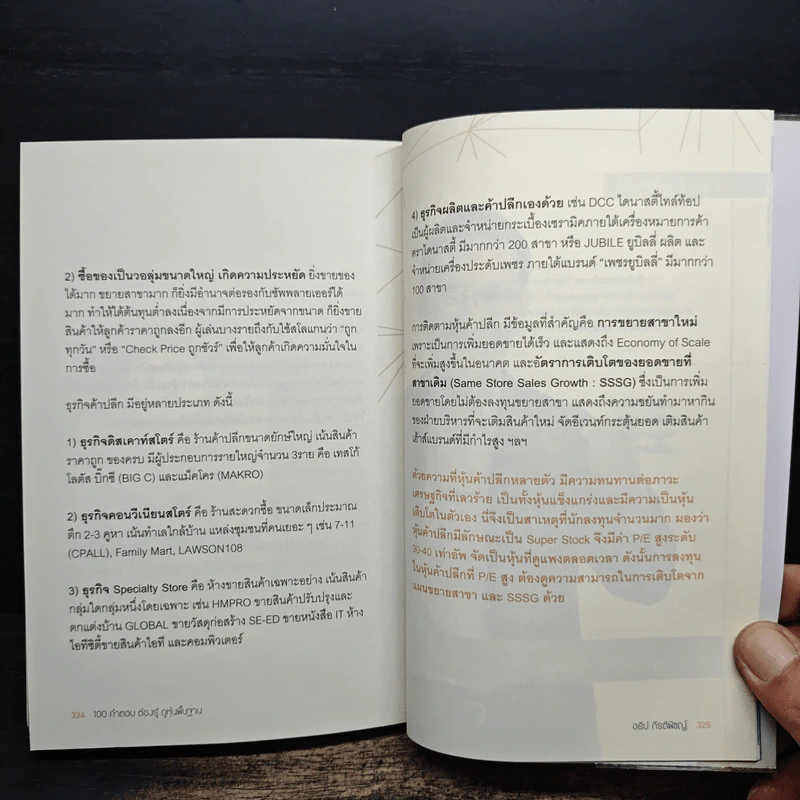 2) ซื้อของเป็นวอลุ่มขนาดใหญ่ เกิดความประหยัด ยิ่งขายของ
ได้มาก ขยายสาขามาก ก็ยิ่งมีอำนาจต่อรองกับซัพพลายเออร์ได้
มาก ทำให้ได้ต้นทุนต่ำลงเนื่องจากมีการประหยัดจากขนาด ก็ยิ่งขาย
สินค้าให้ลูกค้าราคาถูกลงอีก ผู้เล่นบางรายถึงกับใช้สโลแกนว่า "ถูก
ทุกวัน" หรือ "Check Price ถูกชัวร์" เพื่อให้ลูกค้าเกิดความมั่นใจใน
การซื้อ
ธุรกิจค้าปลีก มีอยู่หลายประเภท ดังนี้
1) ธุรกิจดิสเคาท์สโตร์ คือ ร้านค้าปลีกขนาดยักษ์ใหญ่ เน้นสินค้า
ราคาถูก ของครบ มีผู้ประกอบการรายใหญ่จำนวน 3ราย คือ เทสโก้
โลตัส บิ๊กซี (BIG C) และแม็คโคร (MAKRO)
2) ธุรกิจคอนวีเนียนสโตร์ คือ ร้านสะดวกซื้อ ขนาดเล็กประมาณ
ตึก 2-3 คูหา เน้นทำเลใกล้บ้าน แหล่งชุมชนที่คนเยอะ ๆ เช่น 7-11
(CPALL), Family Mart, LAWSON108
3) ธุรกิจ Specialty Store คือ ห้างขายสินค้าเฉพาะอย่าง เน้นสินค้า
กลุ่มใดกลุ่มหนึ่งโดยเฉพาะ เช่น HMPRO ขายสินค้าปรับปรุงและ
ตกแต่งบ้าน GLOBAL ขายวัสดุก่อสร้าง SE-ED ขายหนังสือ IT ห้าง
ไอทีซิตี้ขายสินค้าไอที และคอมพิวเตอร์
324 100 คำตอบ ต้องรู้ ดูหุ้นพื้นฐาน
4) ธุรกิจผลิตและค้าปลีกเองด้วย เช่น DCC ไดนาสตี้ไทล์ท้อป
เป็นผู้ผลิตและจำหน่ายกระเบื้องเซรามิคภายใต้เครื่องหมายการค้า
ตราไดนาสตี้ มีมากกว่า 200 สาขา หรือ JUBILE ยูบิลลี่ ผลิต และ
จำหน่ายเครื่องประดับเพชร ภายใต้แบรนด์ "เพชรยูบิลลี่" มีมากกว่า
100 สาขา
การติดตามหุ้นค้าปลีก มีข้อมูลที่สำคัญคือ การขยายสาขาใหม่
เพราะเป็นการเพิ่มยอดขายได้เร็ว และแสดงถึง Economy of Scale
ที่จะเพิ่มสูงขึ้นในอนาคต และอัตราการเติบโตของยอดขายที่
สาขาเดิม (Same Store Sales Growth : SSSG) ซึ่งเป็นการเพิ่ม
ยอดขายโดยไม่ต้องลงทุนขยายสาขา แสดงถึงความขยันทำมาหากิน
ของฝ่ายบริหารที่จะเติมสินค้าใหม่ จัดอีเวนท์กระตุ้นยอด เติมสินค้า
เฮ้าส์แบรนด์ที่มีกำไรสูง ฯลฯ
ด้วยความที่หุ้นค้าปลีกหลายตัว มีความทนทานต่อภาวะ
เศรษฐกิจที่เลวร้าย เป็นทั้งหุ้นแข็งแกร่งและมีความเป็นหุ้น
เติบโตในตัวเอง นี่จึงเป็นสาเหตุที่นักลงทุนจำนวนมาก มองว่า
หุ้นค้าปลีกมีลักษณะเป็น Super Stock จึงมีค่า P/E สูงระดับ
30-40 เท่าอัพ จัดเป็นหุ้นที่ดูแพงตลอดเวลา ดังนั้นการลงทุน
ในหุ้นค้าปลีกที่ P/E สูง ต้องดูความสามารถในการเติบโตจาก
แผนขยายสาขา และ SSSG ด้วย
อธิป กีรติพิชญ์ 325